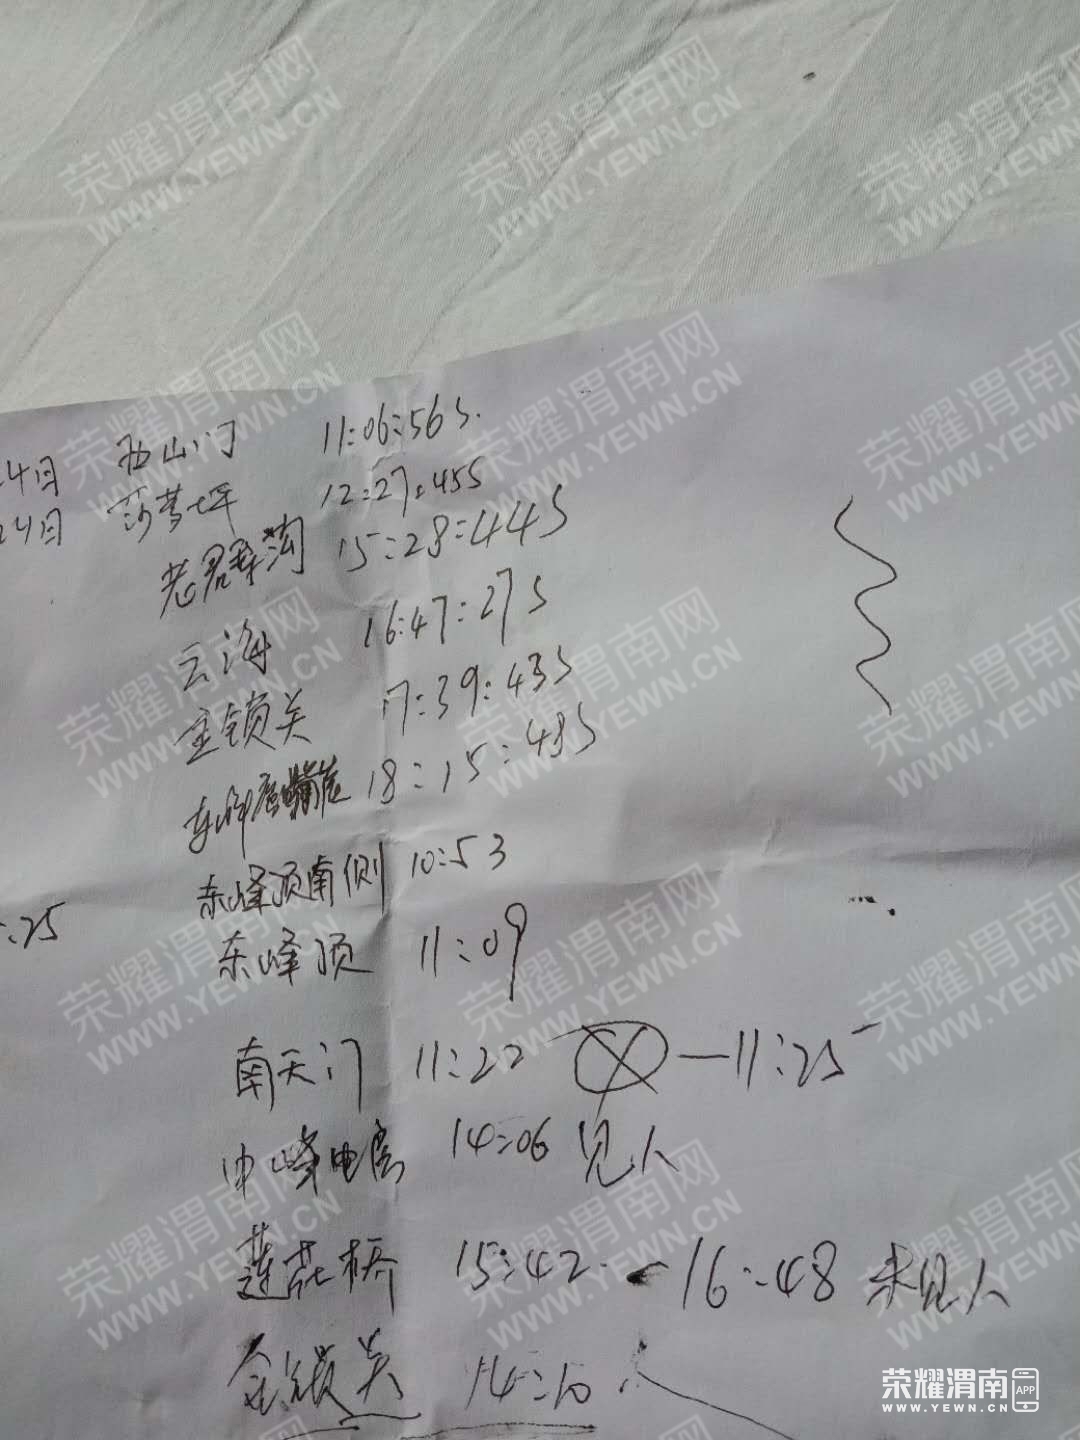 4日 西山门 11:06:56s.
24日 莎萝坪 12:27:45s
老君犁沟 15:28:44s
云海 16:47:27s
金锁关 17:39:43s
东峰 18:15:48s
东峰顶南侧 10:53
:25
东峰顶 11:09
南天门 11:22 —11:25
中峰电房 14:06 见人
莲花桥 15:42 - 16:48 未见人
金锁关 14:10
荣耀渭南网
WWW.YEWN.CN
荣耀渭南 APP
WWW.YEWN.CN